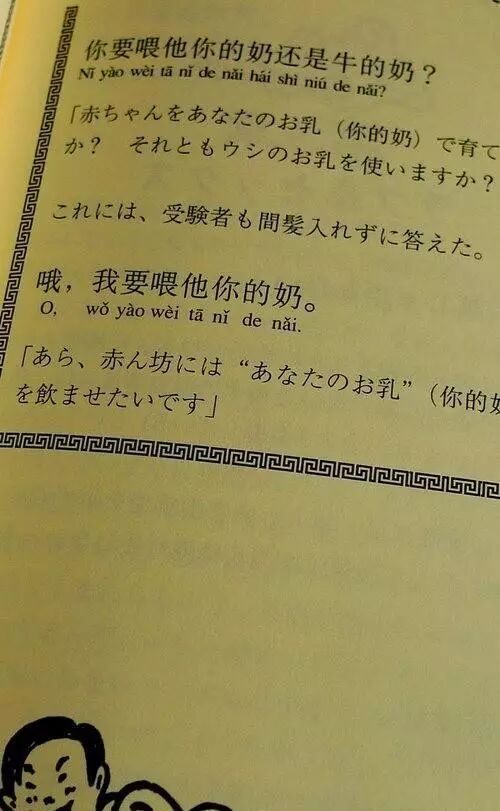 你要喂他你的奶还是牛的奶？
Nǐ yào wèi tā nǐ de nǎi hái shì niú de nǎi?
「赤ちゃんをあなたのお乳（你的奶）で育て
か？　それともウシのお乳を使いますか？
これには、受験者も間髪入れずに答えた。
哦，我要喂他你的奶。
O, wǒ yào wèi tā nǐ de nǎi.
「あら、赤ん坊には“あなたのお乳”（你的奶
を飲ませたいです」